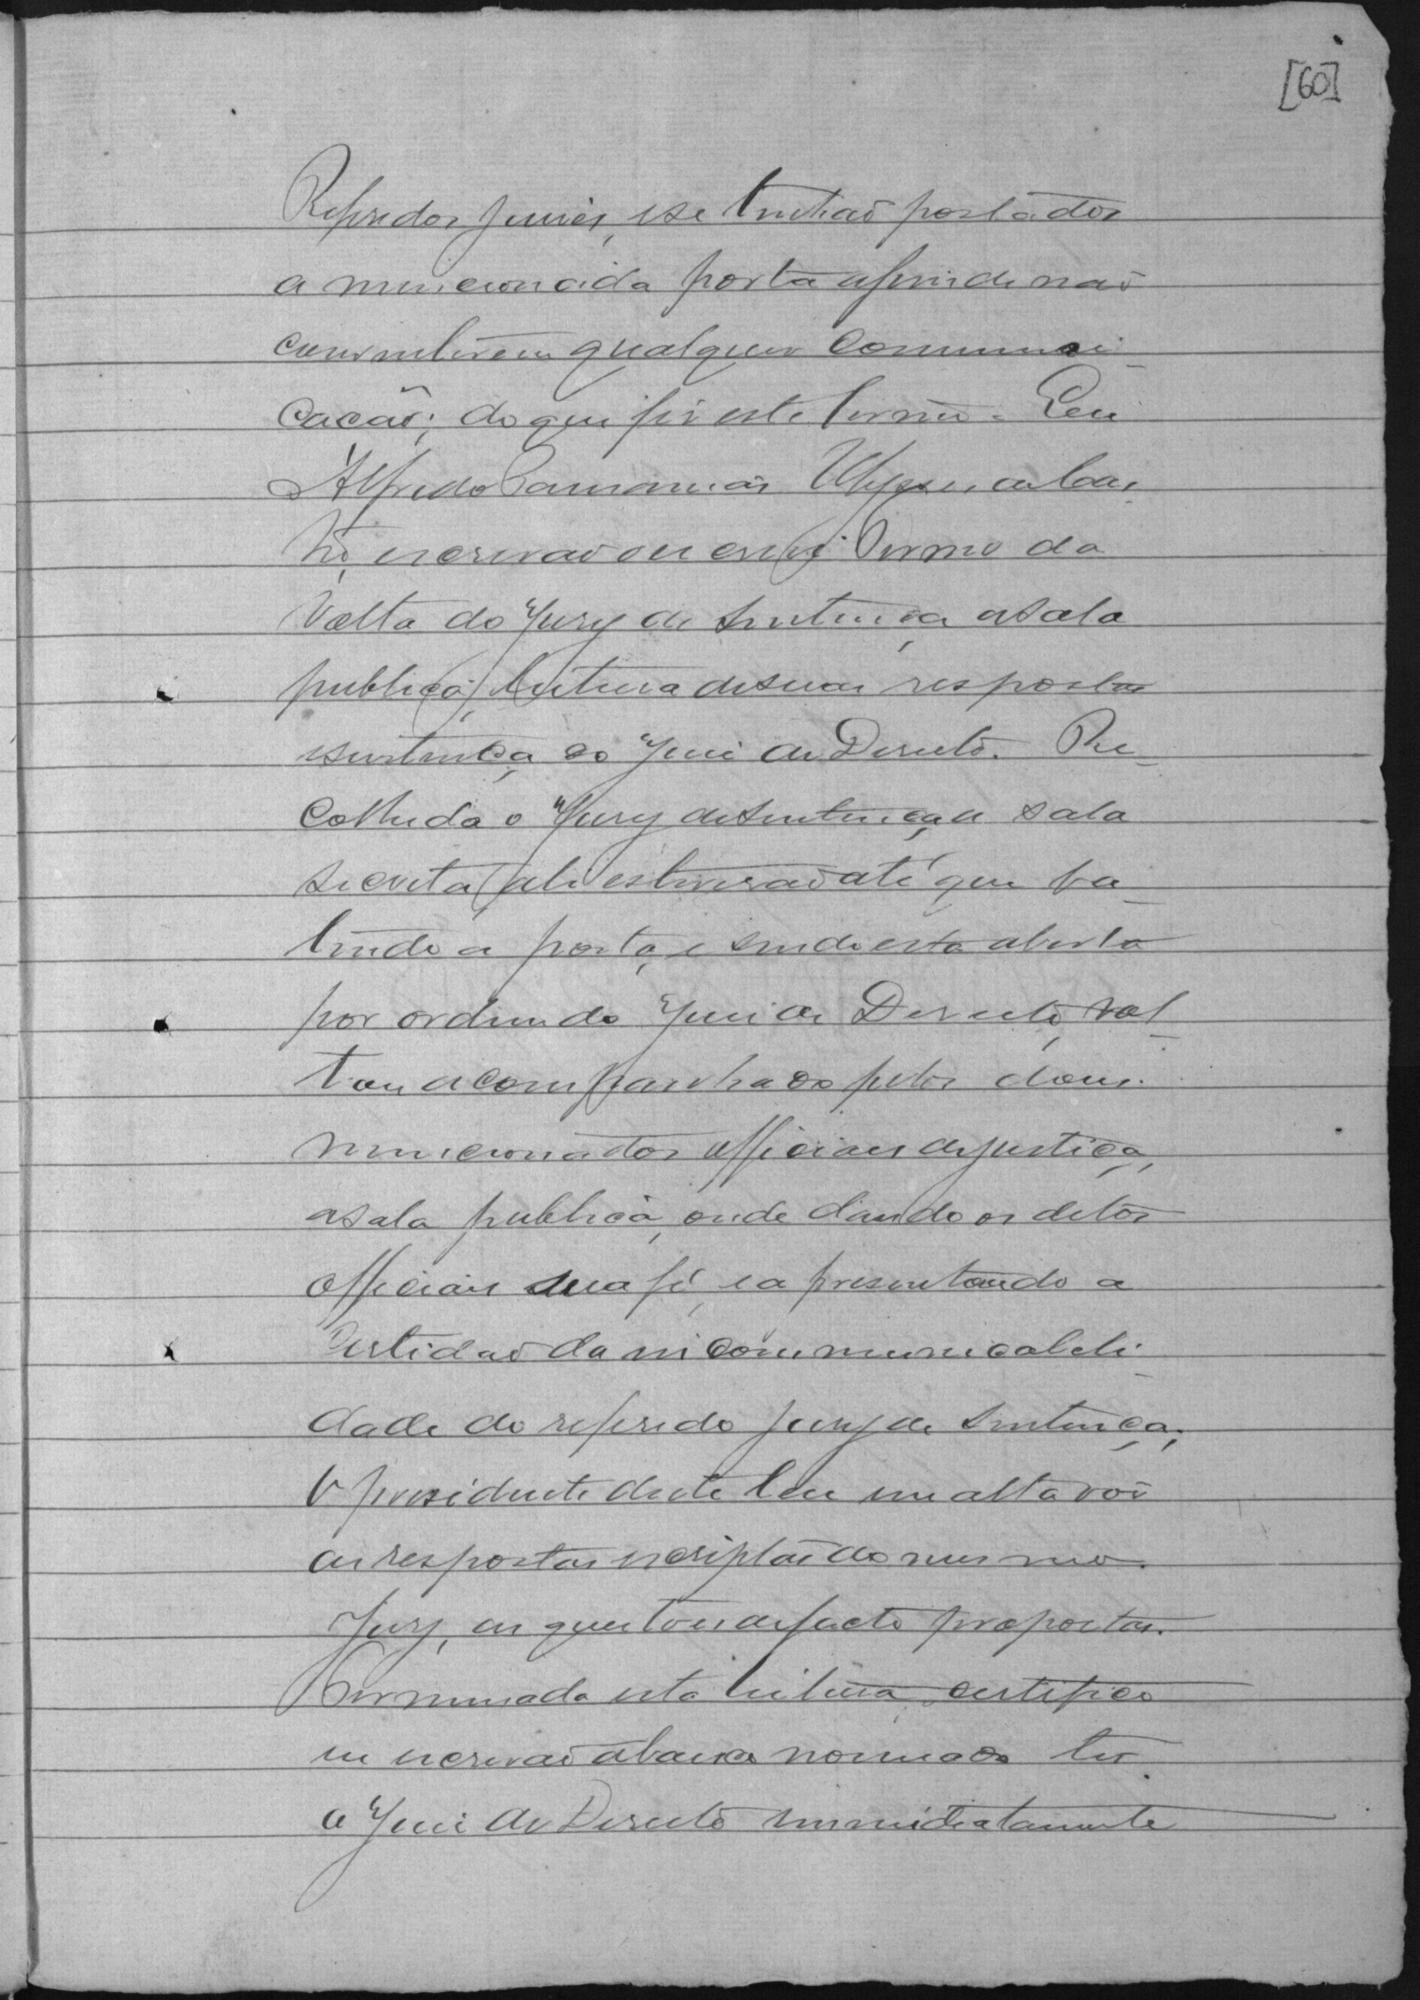 [60]
Referidos juizes, e se tinhão postádos
a mencionada porta afim de não
consentirem qualquer communi-
cacão; do que fiz este termo. Eu
Alfredo Ulysses
escrivão o escrevi. Termo da
Volta do Jury de Sentença a sala
publica, leitura de suas respostas
e sentença do Juiz de Direito. Re-
colhido o Jury de Sentença a sala
secreta, ali estiverão até que ba-
tendo a porta, e sendo esta aberta
por ordem do Juiz de Direito, vol-
tou acompanhado pelos dous
mencionados officiaes de justiça,
a sala publica, onde dando os ditos
officiaes sua fé, e apresentando a
Certidão da incommunicabeli-
dade do referido jury de sentença;
O presidente deste leu em alta voz
as respostas escriptas do mesmo
Jury, as questões de facto propostas.
Terminada esta leitura, certifico
eu escrivão abaixo nomeado ter
o Juiz de Direito immidiatamente